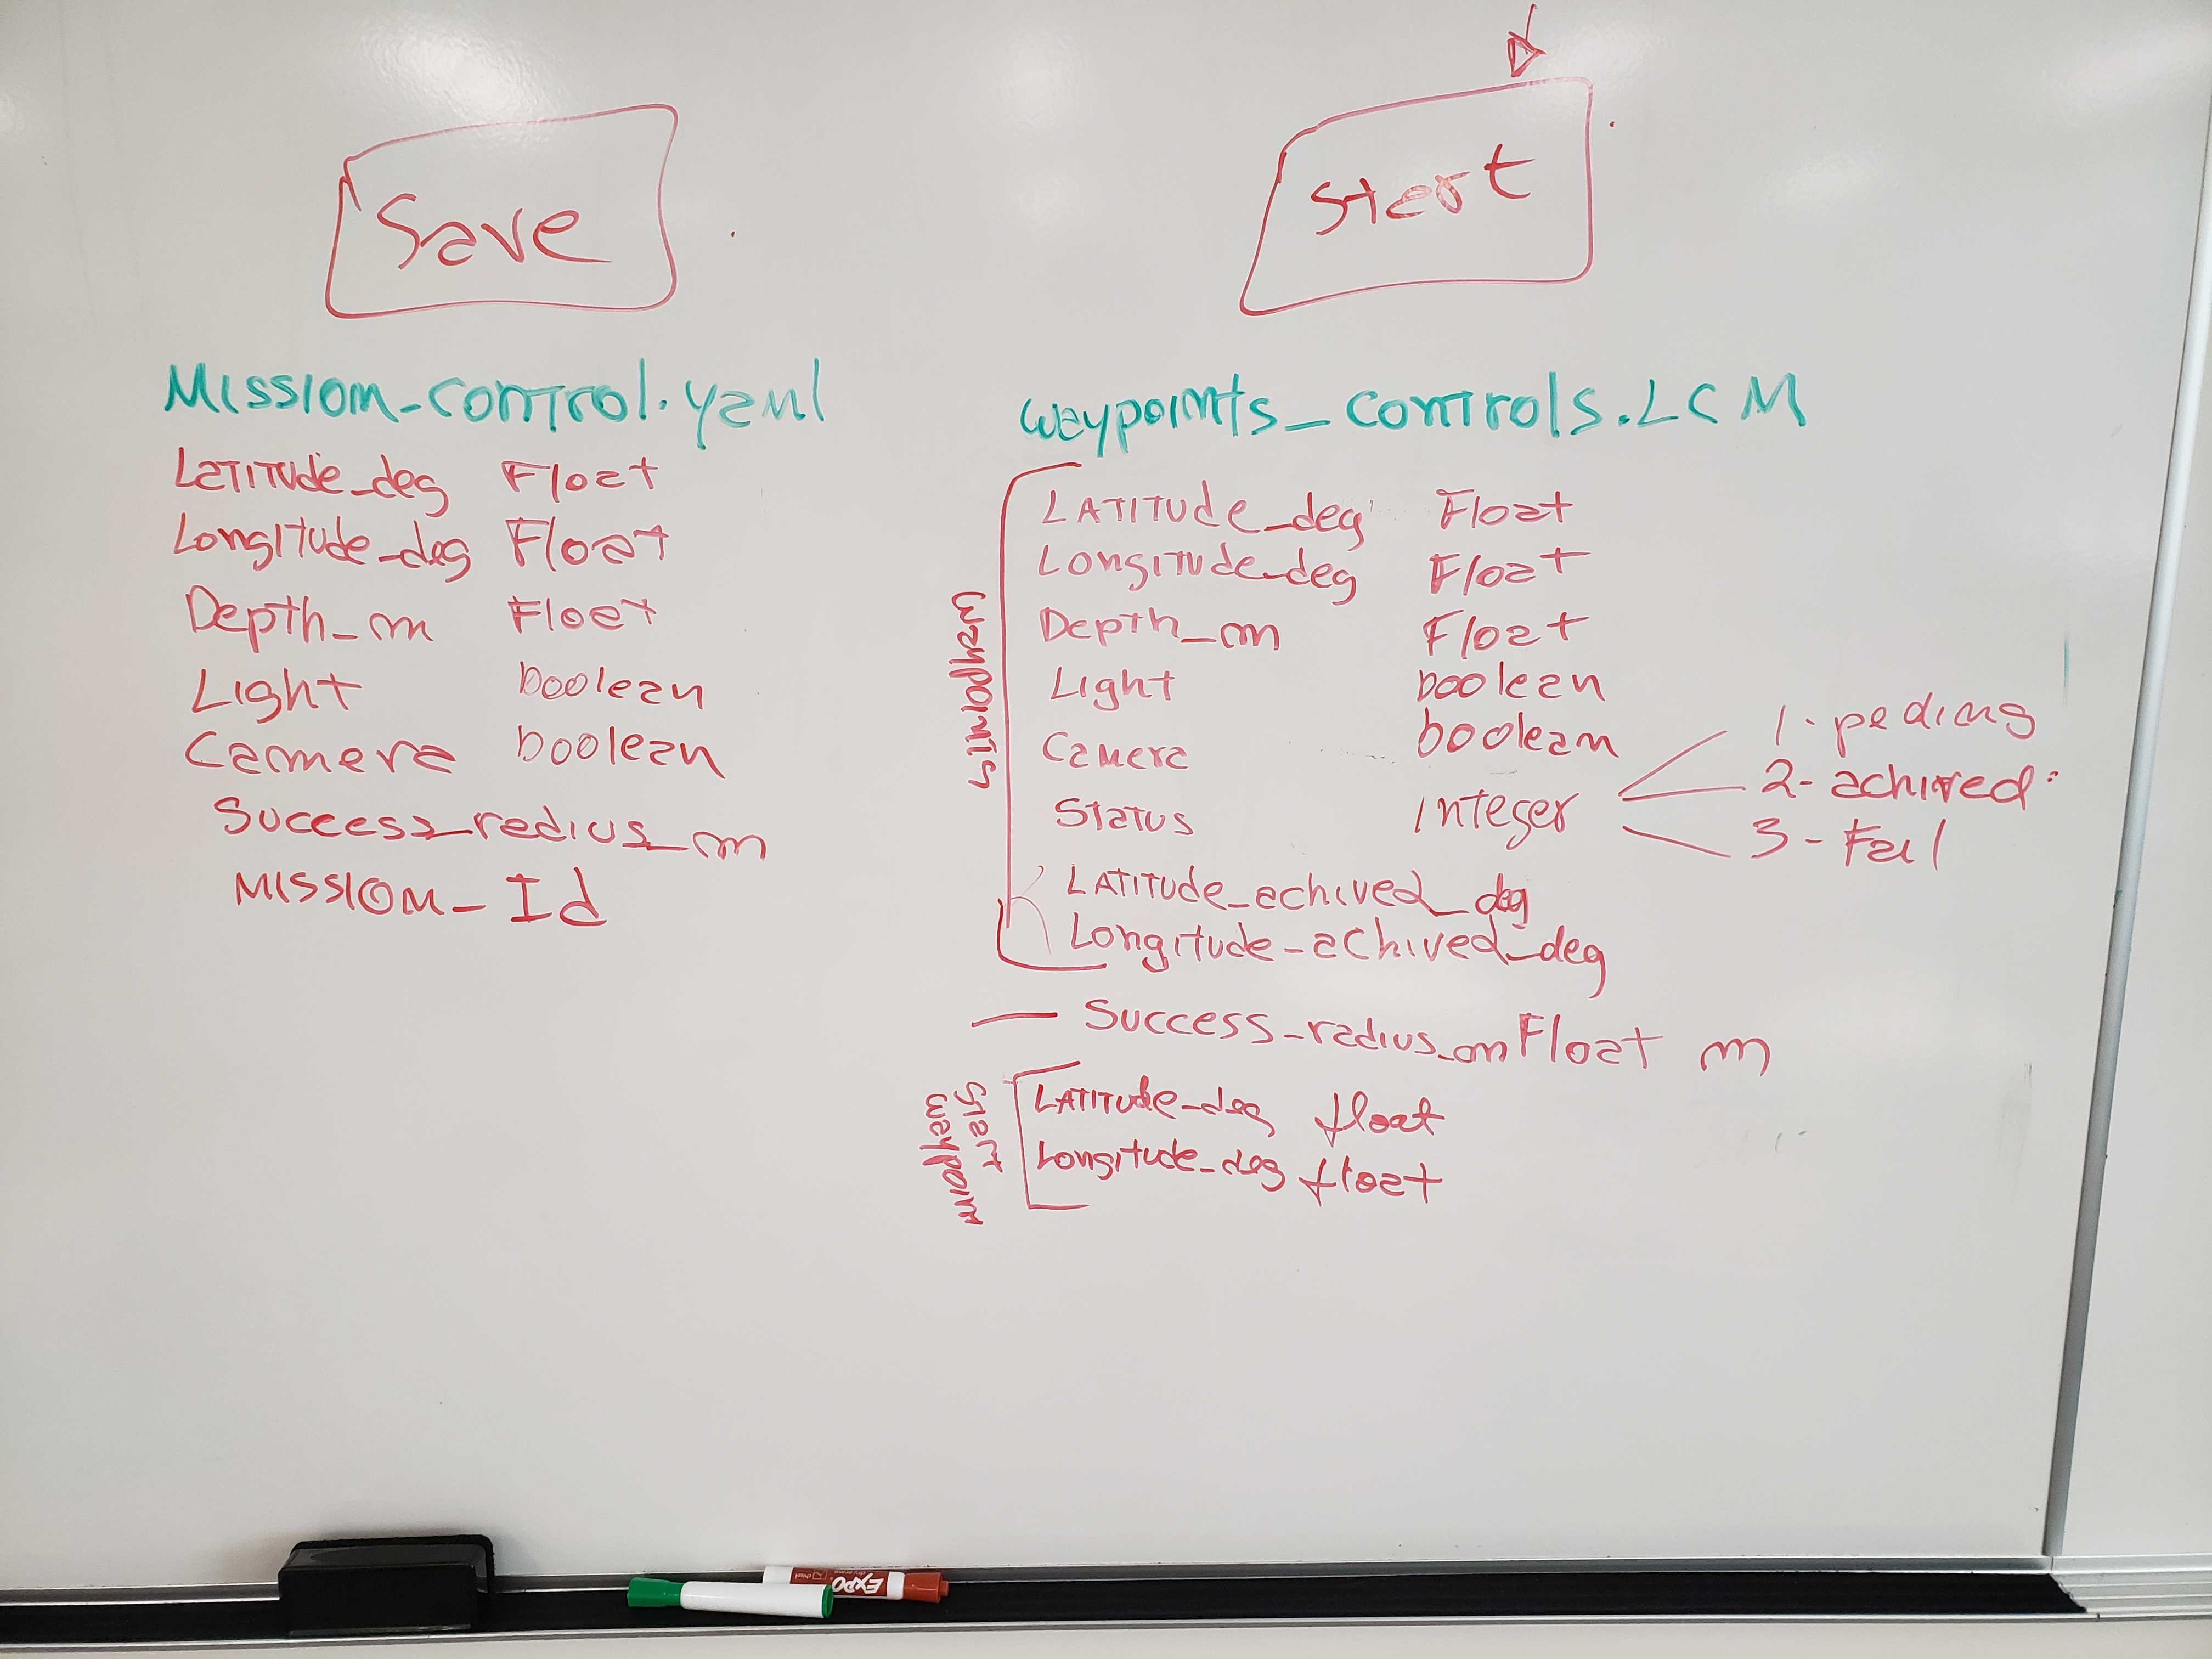 Save
Mission_control.yaml
Latitude_deg Float
Longitude_deg Float
Depth_m Float
Light boolean
Camera boolean
Success_radius_m
Mission_Id
Start
waypoints_controls.LCM
waypoints
Latitude_deg Float
Longitude_deg Float
Depth_m Float
Light boolean
Camera boolean
Status Integer
1- peding
2- achived
3- Fail
Latitude_achived_deg
Longitude_achived_deg
Success_radius_m Float m
Start
waypoint
Latitude_deg float
Longitude_deg float
EXPO